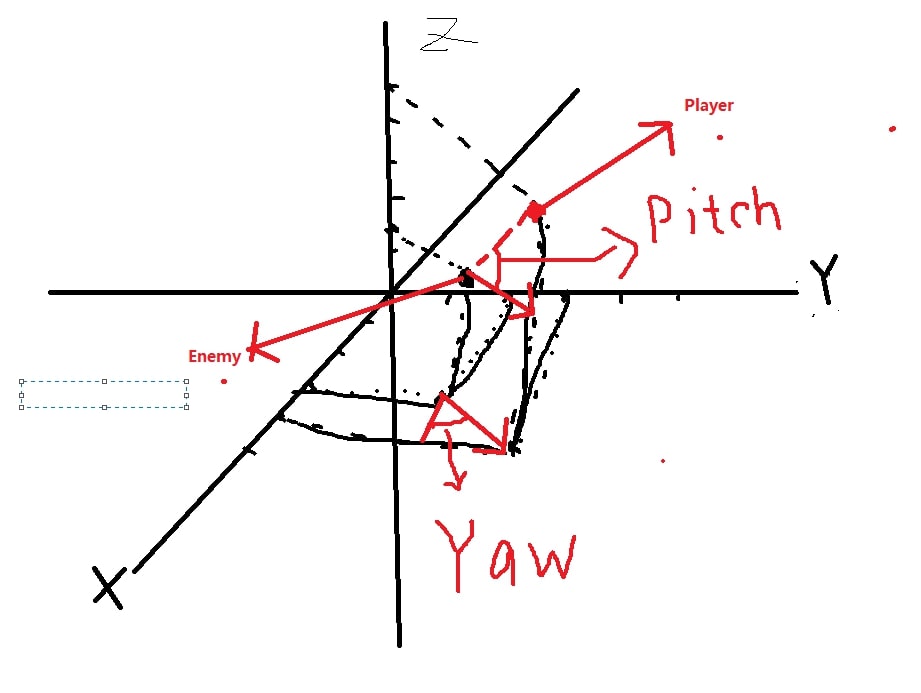 Z
Player
Pitch
Y
Enemy
X
Yaw